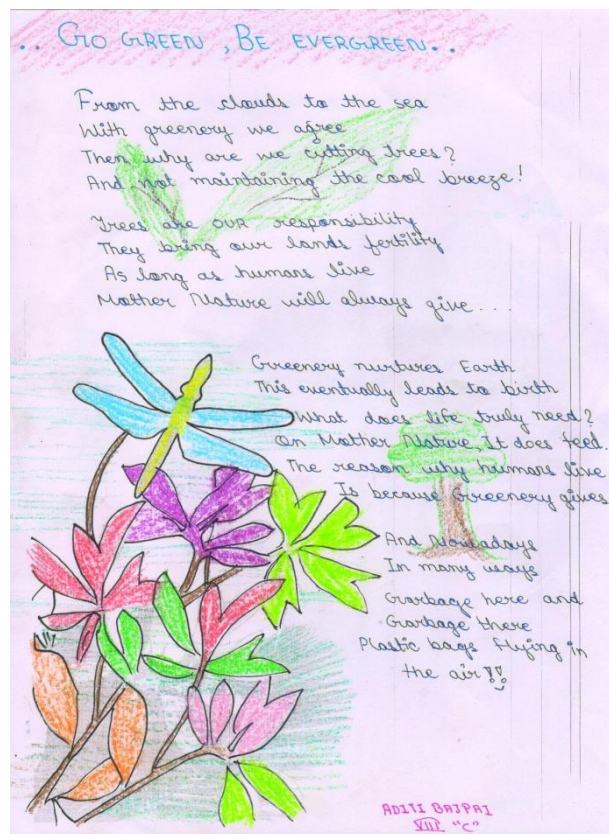 .. Go GREEN , BE EVERGREEN..
From the clouds to the sea
With greenery we agree
Then why are we cutting trees?
And not maintaining the cool breeze!
Trees are OUR responsibility
They bring our lands fertility
As long as humans live
Mother Nature will always give....
Greenery nurtures Earth
This eventually leads to birth
What does life truly need?
On Mother Nature, It does feed.
The reason why humans live
Is because Greenery gives
And Nowadays
In many ways
Garbage here and
Garbage there
Plastic bags flying in
the air!!
ADITI BAJPAI
VIII "C"